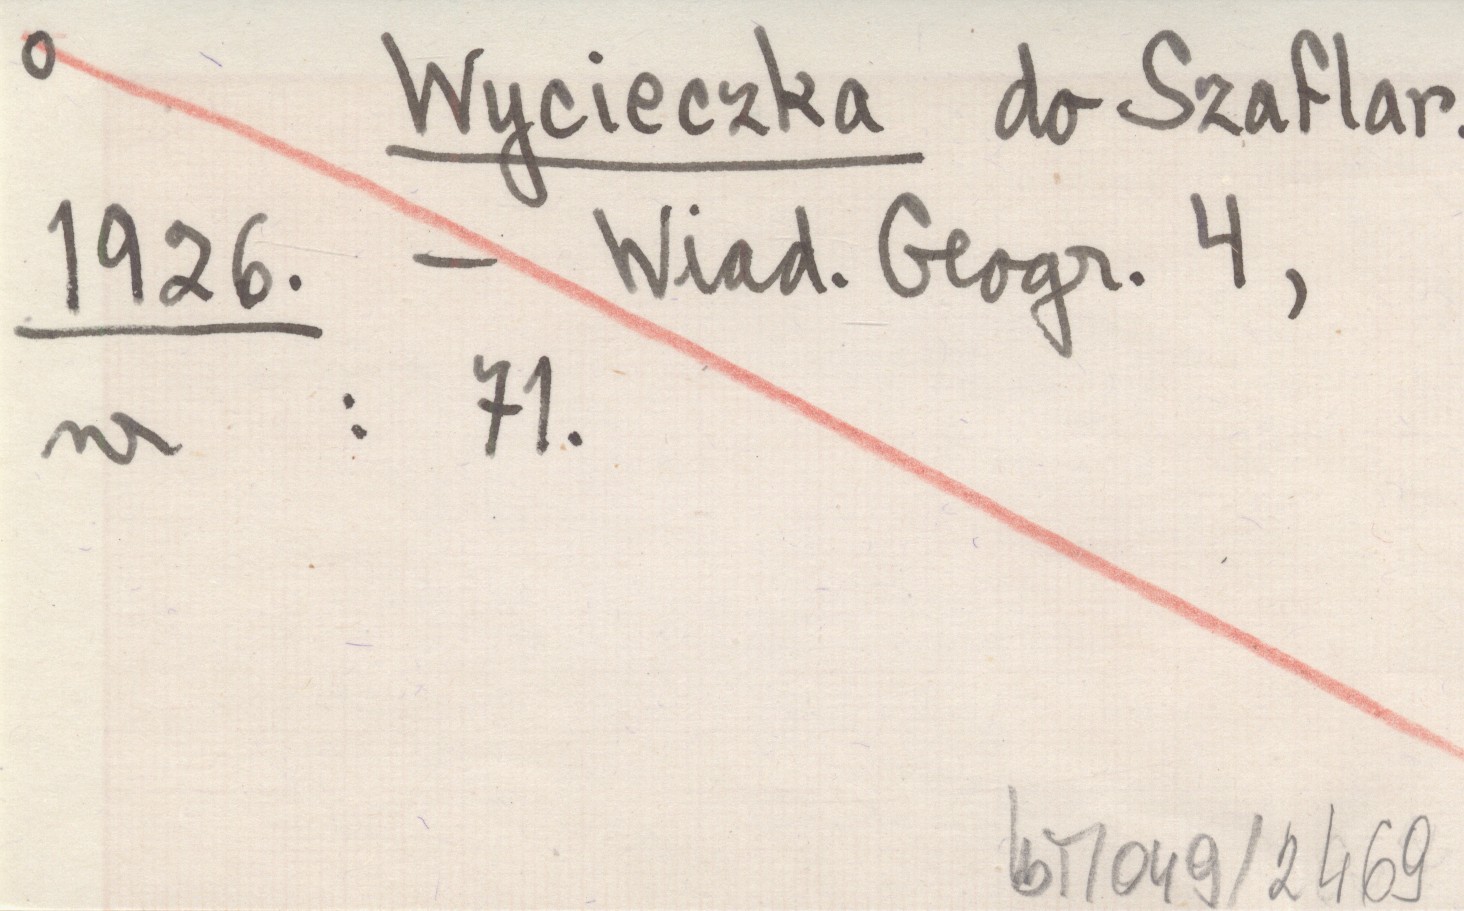 o Wycieczka do Szaflar.
1926. – Wiad. Geogr. 4,
nr : 71.
bī/049/2469